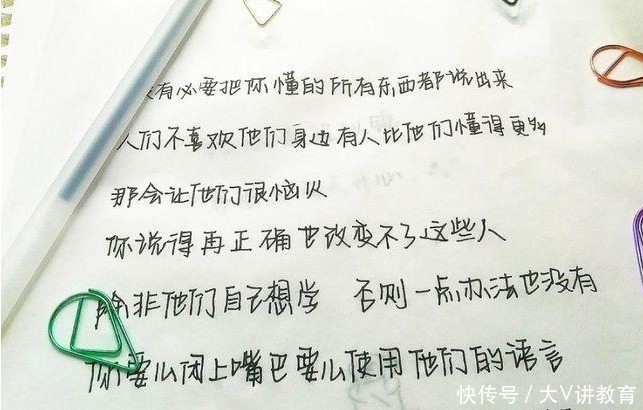 没有必要把你懂的所有东西都说出来
人们不喜欢他们身边有人比他们懂得更多
那会让他们很恼火
你说得再正确也改变不了这些人
除非他们自己想学 否则一点办法也没有
你要么闭上嘴巴要么使用他们的语言
快传号 / 大V讲教育